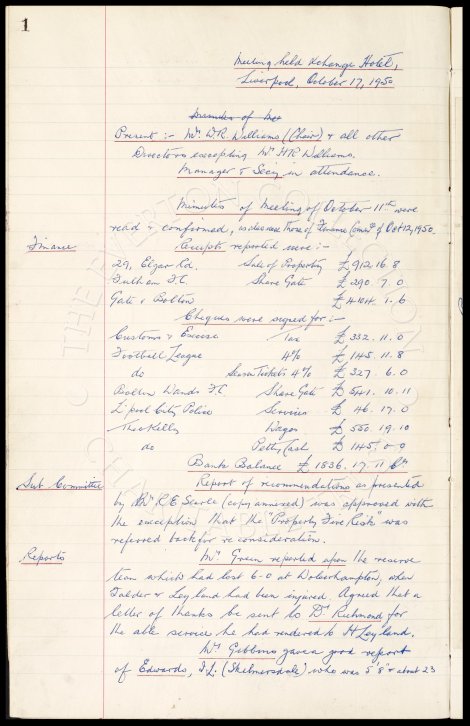 1
Meeting held Xchange Hotel,
Liverpool, October 17, 1950
Minutes of Mee
Present :- Mr. W.R. Williams (Chair) & all other
Directors excepting Mr H.R. Williams.
Manager & Secy in attendance.
Minutes of Meeting of October 11th were
read & confirmed, as also were those of Finance Commt of Oct 12, 1950.
Finance Receipts reported were :-
29, Elgar Rd. Sale of Property £912.16.8
Fulham F.C. Share Gate £290.7.0
Gate v Bolton £4104.1.6
Cheques were signed for :-
Customs & Excise Tax £332.11.0
Football League 4% £145.11.8
do Season Tickets 4% £327.6.0
Bolton Wands F.C. Share Gate £541.10.11
L'pool City Police Services £46.17.0
Theo Kelly Wages £550.19.10
do Petty Cash £145.0.0
Bank Balance £1836.17.11 Cr.
Sub Committee Report of recommendations as presented
by Mr. R.E. Searle (copy annexed) was approved with
the exception that the "Property Fire Risk" was
referred back for reconsideration.
Reports Mr. Green reported upon the reserve
team which had lost 6-0 at Wolverhampton, when
Falder & Leyland had been injured. Agreed that a
letter of thanks be sent to Dr Richmond for
the able service he had rendered to H Leyland.
Mr. Gibbins gave a good report
of Edwards, J.L. (Skelmersdale) who was 5'8" & about 23